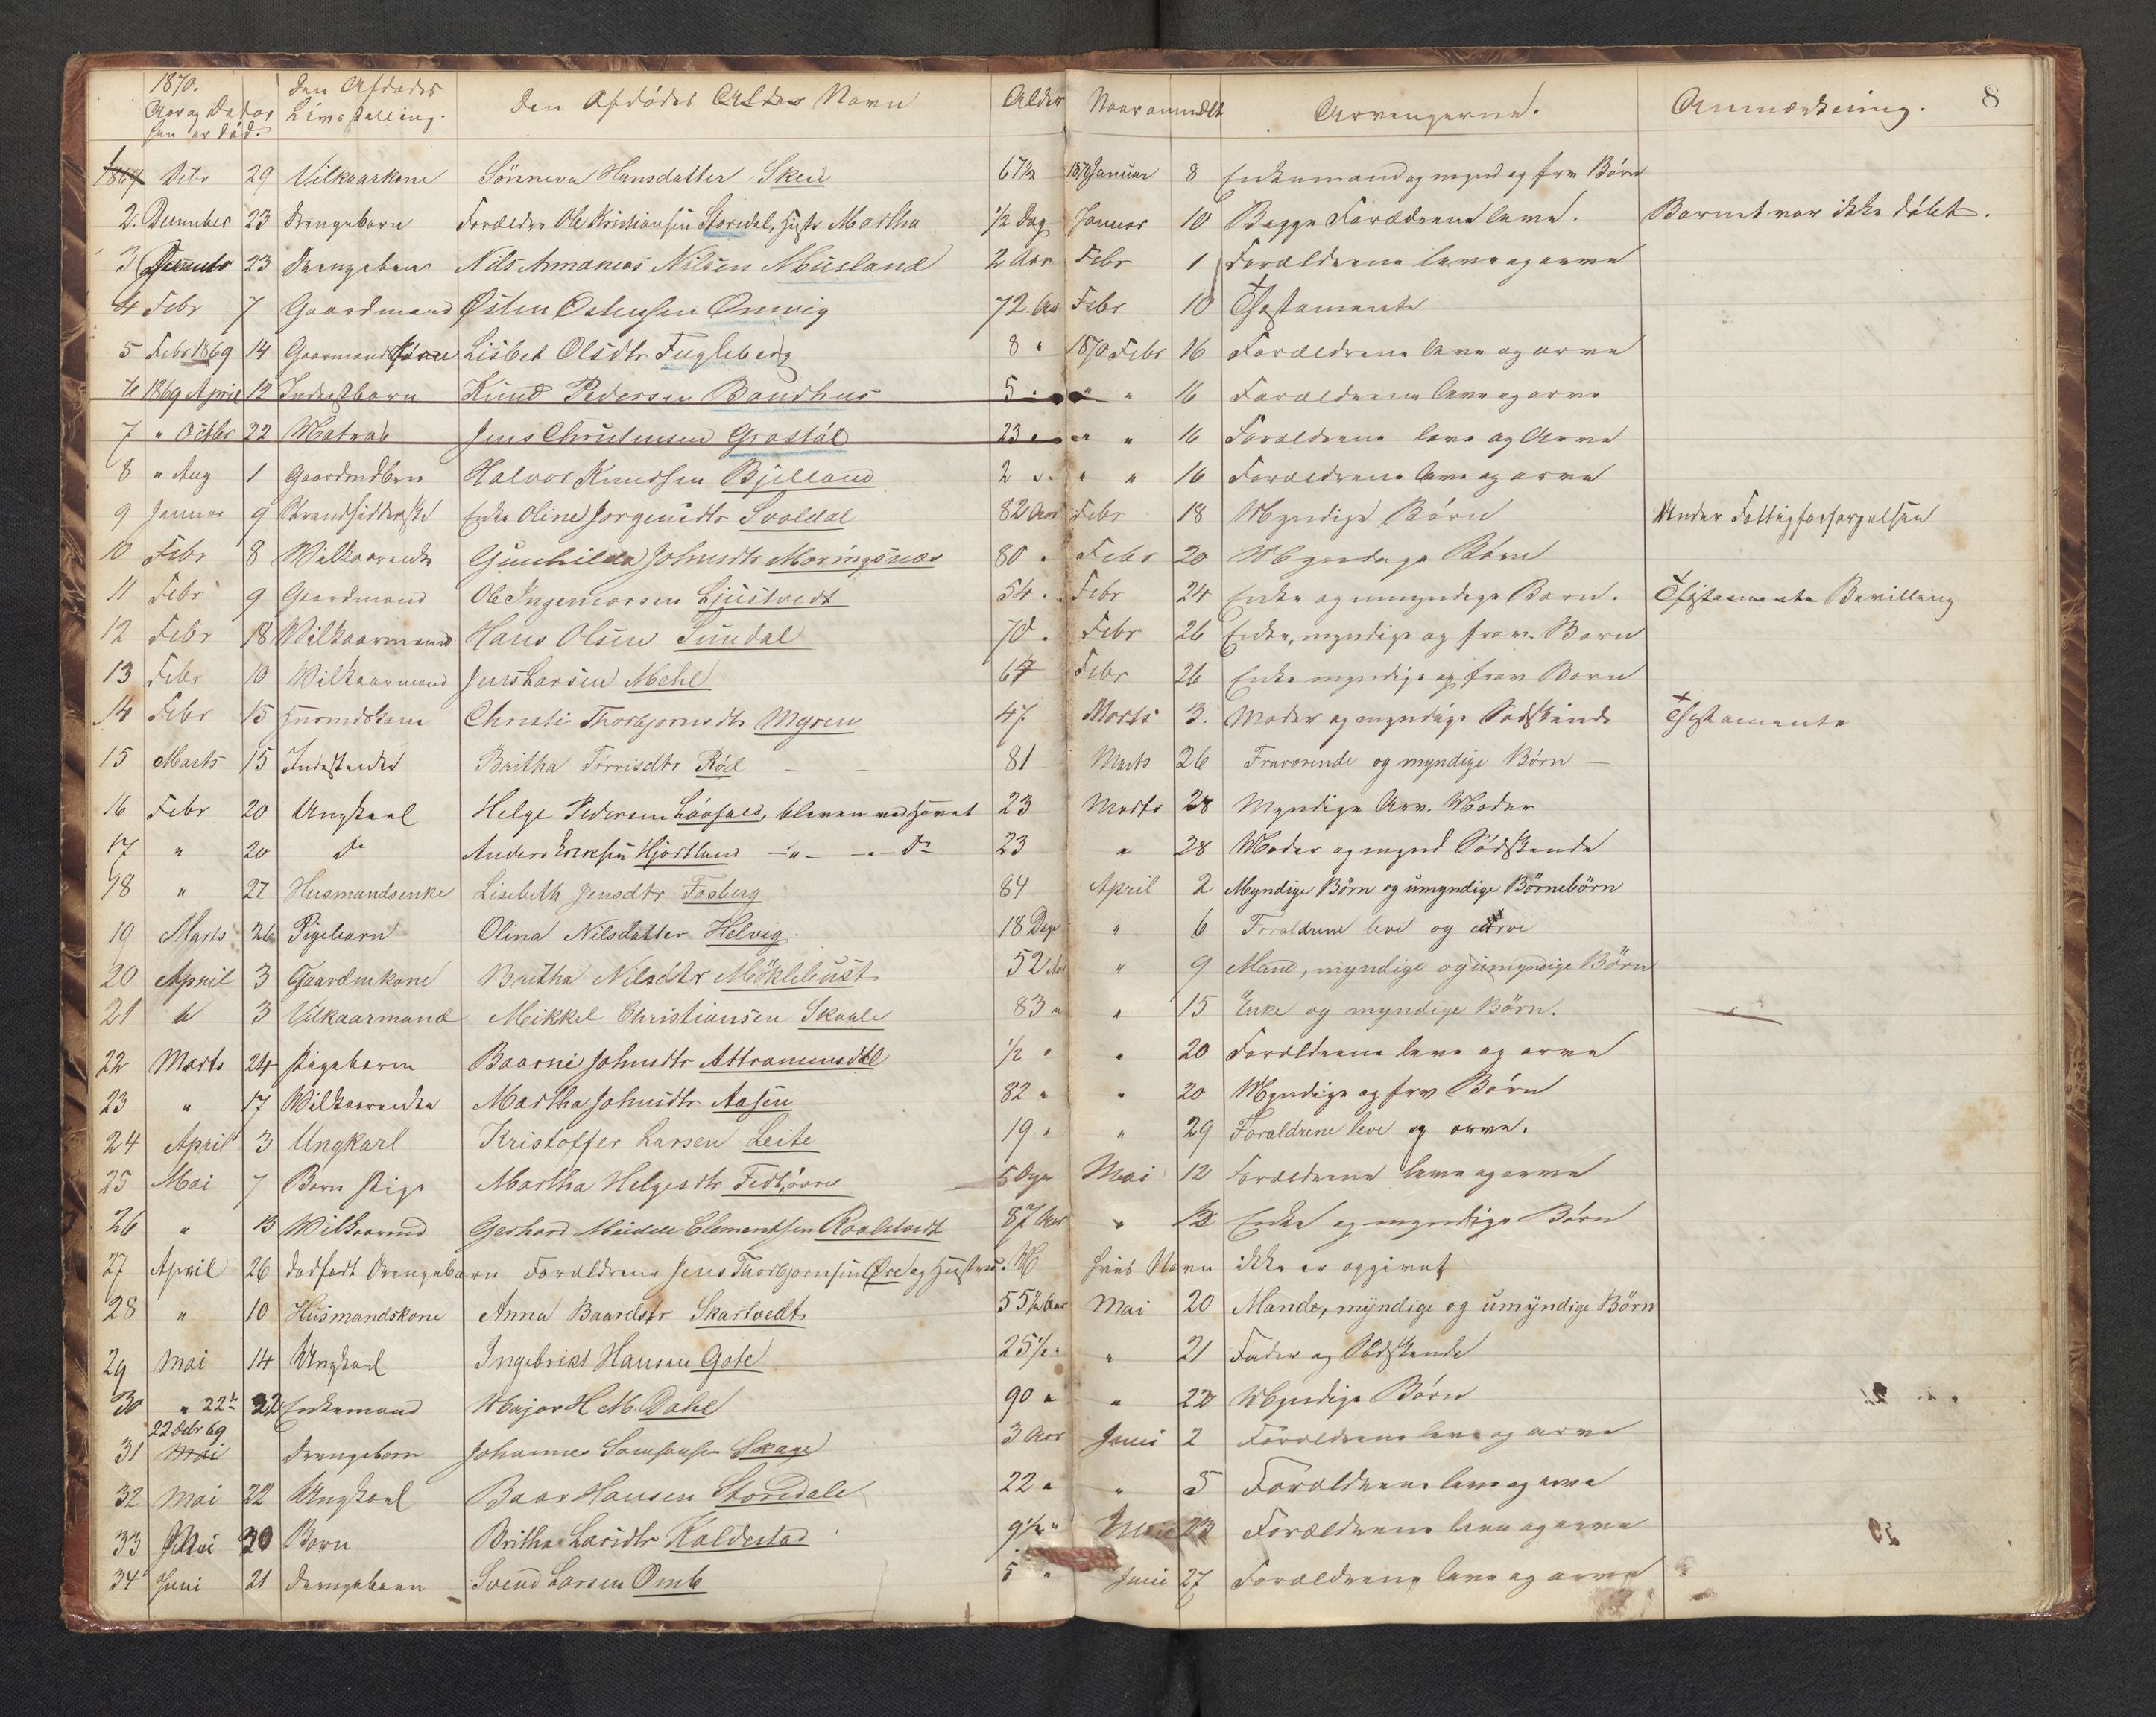 8
1870.
Aar og Datoe han er død. Den Afdødes Livsstilling. Den Afdødes Alder Navn Alder Naar anmeldt Arvingerne. Anmærkning.
1 1869 Debr 29 Vilkaarkone Sönneva Hansdatter Skeie 67½ 1870 Januar 8 Enkemand og mynd og frv Börn
2. December 23 Drengebarn Forældre Ole Kristiansen Storedal, Hustr Martha ½ Dag Januar 10 Begge Forældrene leve. Barnet var ikke døbt.
3 23 Drengebarn Nils Amanias Nilsen Musland 2 Aar Febr 1 Forældrene leve og arve
4 Febr 7 Gaardmand Östen Östensen Omvig 72. Aar Febr 10 Testamente
5 Febr 1869 14 Lisbet Olsdtr Fugleberg 8 " 1870 Febr 16 Forældrene leve og arve
6 1869 April 12 Inderstbarn Knud Pedersen Bondhus 5 " " " 16 Forældrene leve og arve
7 " Octbr 22 Matros Jens Christensen 23 " " " 16 Forældrene leve og Arve
8 " Aug 1 Halvor Knudsen Bjelland 2 " " " 16 Forældrene leve og arve
9 Januar 9 Strandsidderske Enke Oline Jörgensdtr Svoldal 82 Aar Febr 18 Myndige Börn Under Fattigforsørgelsen
10 Febr 8 Vilkaarenke Gunhilda Johnsdtr Moringsnæs 80 " Febr 20 Myndige Börn
11 Febr 9 Gaardmand Ole Ingemorsen Ljustvedt 54 " Febr 24 Enke og umyndige Barn. Testamente Bevilling
12 Febr 18 Vilkaarmand Hans Olsen Sundal 70 " Febr 26 Enke, myndige og frav. Barn
13 Febr 10 Vilkaarmand Jens Larsen Mehl 67 Febr 26 Enke myndige og frav Barn
14 Febr 15 Christi Thorbjörnsdtr Myren 47 Marts 3. Moder og myndige Sødskende Testamente
15 Marts 15 Inderstenke Britha Törrisdtr Röd 81 Marts 26 Fraværende og myndige Börn
16 Febr 20 Ungkarl Helge Pedersen Löofald, bleven ved Havet 23 Marts 28 Myndige Arv. Moder
17 " 20 do Anders Eriksen Hjortland " " do 23 " 28 Moder og mynd Södskende
18 " 27 Husmandsenke Lisebeth Jensdtr Fosberg 84 April 2 Myndige Börn og umyndige Börnebörn
19 Marts 26 Pigebarn Olina Nilsdatter Helvig 18 Dage " 6 Foraldrene leve og arve
20 April 3 Gaardmkone Britha Nilsdtr Möklebust 52 Aar " 9 Mand, myndige og umyndige Börn
21 do 3 Vilkaarmand Mikkel Christiansen Skaale 83 " " 15 Enke og myndige Börn.
22 Marts 24 Pigebarn Baarni Johnsdtr Attramunsdal ½ " " 20 Forældrene leve og arve
23 " 17 Vilkaarenke Martha Johnsdtr Aasen 82 " " 20 Myndige og frv Börn
24 April 3 Ungkarl Kristoffer Larsen Leite 19 " " 29 Foraldrene leve og arve.
25 Mai 7 Barn Pige Martha Helgesdtr 5 Dge Mai 12 Forældrene leve og arve
26 " 13 Vilkaarmd Gerhard Meidell Clementsen Roaldstvedt 87 Aar " 12 Enke og myndige Börn
27 April 26 dødfødt Drengebarn Forældrene Jens Thorbjörnsen Øre og Hustru hvis Navn ikke er opgivet
28 " 10 Husmandskone Anna Baardsdtr Skartvedt 55½ Aar Mai 20 Mand, myndige og umyndige Börn
29 Mai 14 Ungkarl Ingebrikt Hansen Gote 25½ " " 21 Fader og Södskende
30 " 22 22 Enkemand Major H. M. Dahl 90 " " 22 Myndige Börn
22 Debr 69
31 Mai Drengebarn Johannes Samsonsen Skage 3 Aar Juni 2 Forældrene leve og arve
32 Mai 22 Ungkarl Baar Hansen Storedale 22 " " 5 Forældrene leve og arve
33 Mai 30 Barn Britha Larsdtr Kaldestad 9½ " 23 Forældrene leve og arve
34 Juni 21 Drengebarn Svend Larsen Omb 5 " Juni 27 Forældrene leve og arve